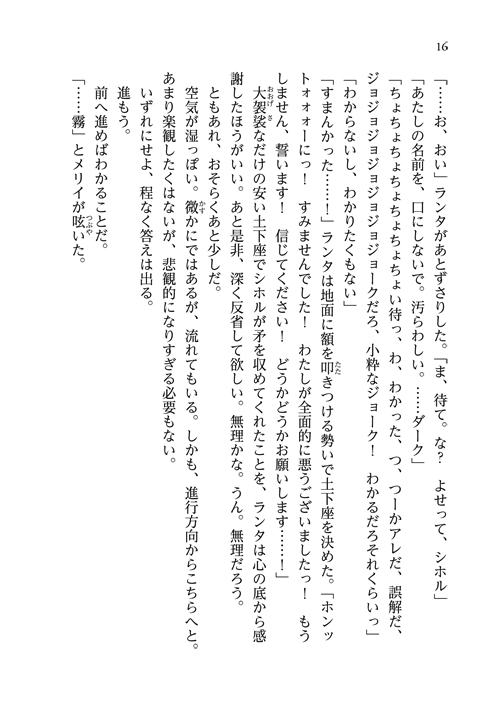 16
「……お、おい」ランタがあとずさりした。「ま、待て。な？　よせって、シホル」
「あたしの名前を、口にしないで。汚らわしい。……ダーク」
「ちょちょちょちょちょちょちょい待っ、わ、わかった、つ、つーかアレだ、誤解だ、
ジョジョジョジョジョジョジョークだろ、小粋なジョーク！　わかるだろそれくらいっ」
「わからないし、わかりたくもない」
「すまんかった……！」ランタは地面に額を叩きつける勢いで土下座を決めた。「ホンッ
トォォォーにっ！　すみませんでした！　わたしが全面的に悪うございましたっ！　もう
しません、誓います！　信じてください！　どうかどうかお願いします……！」
大袈裟なだけの安い土下座でシホルが矛を収めてくれたことを、ランタは心の底から感
謝したほうがいい。あと是非、深く反省して欲しい。無理かな。うん。無理だろう。
ともあれ、おそらくあと少しだ。
空気が湿っぽい。微かにではあるが、流れてもいる。しかも、進行方向からこちらへと。
あまり楽観したくはないが、悲観的になりすぎる必要もない。
いずれにせよ、程なく答えは出る。
進もう。
前へ進めばわかることだ。
「……霧」とメリイが呟いた。